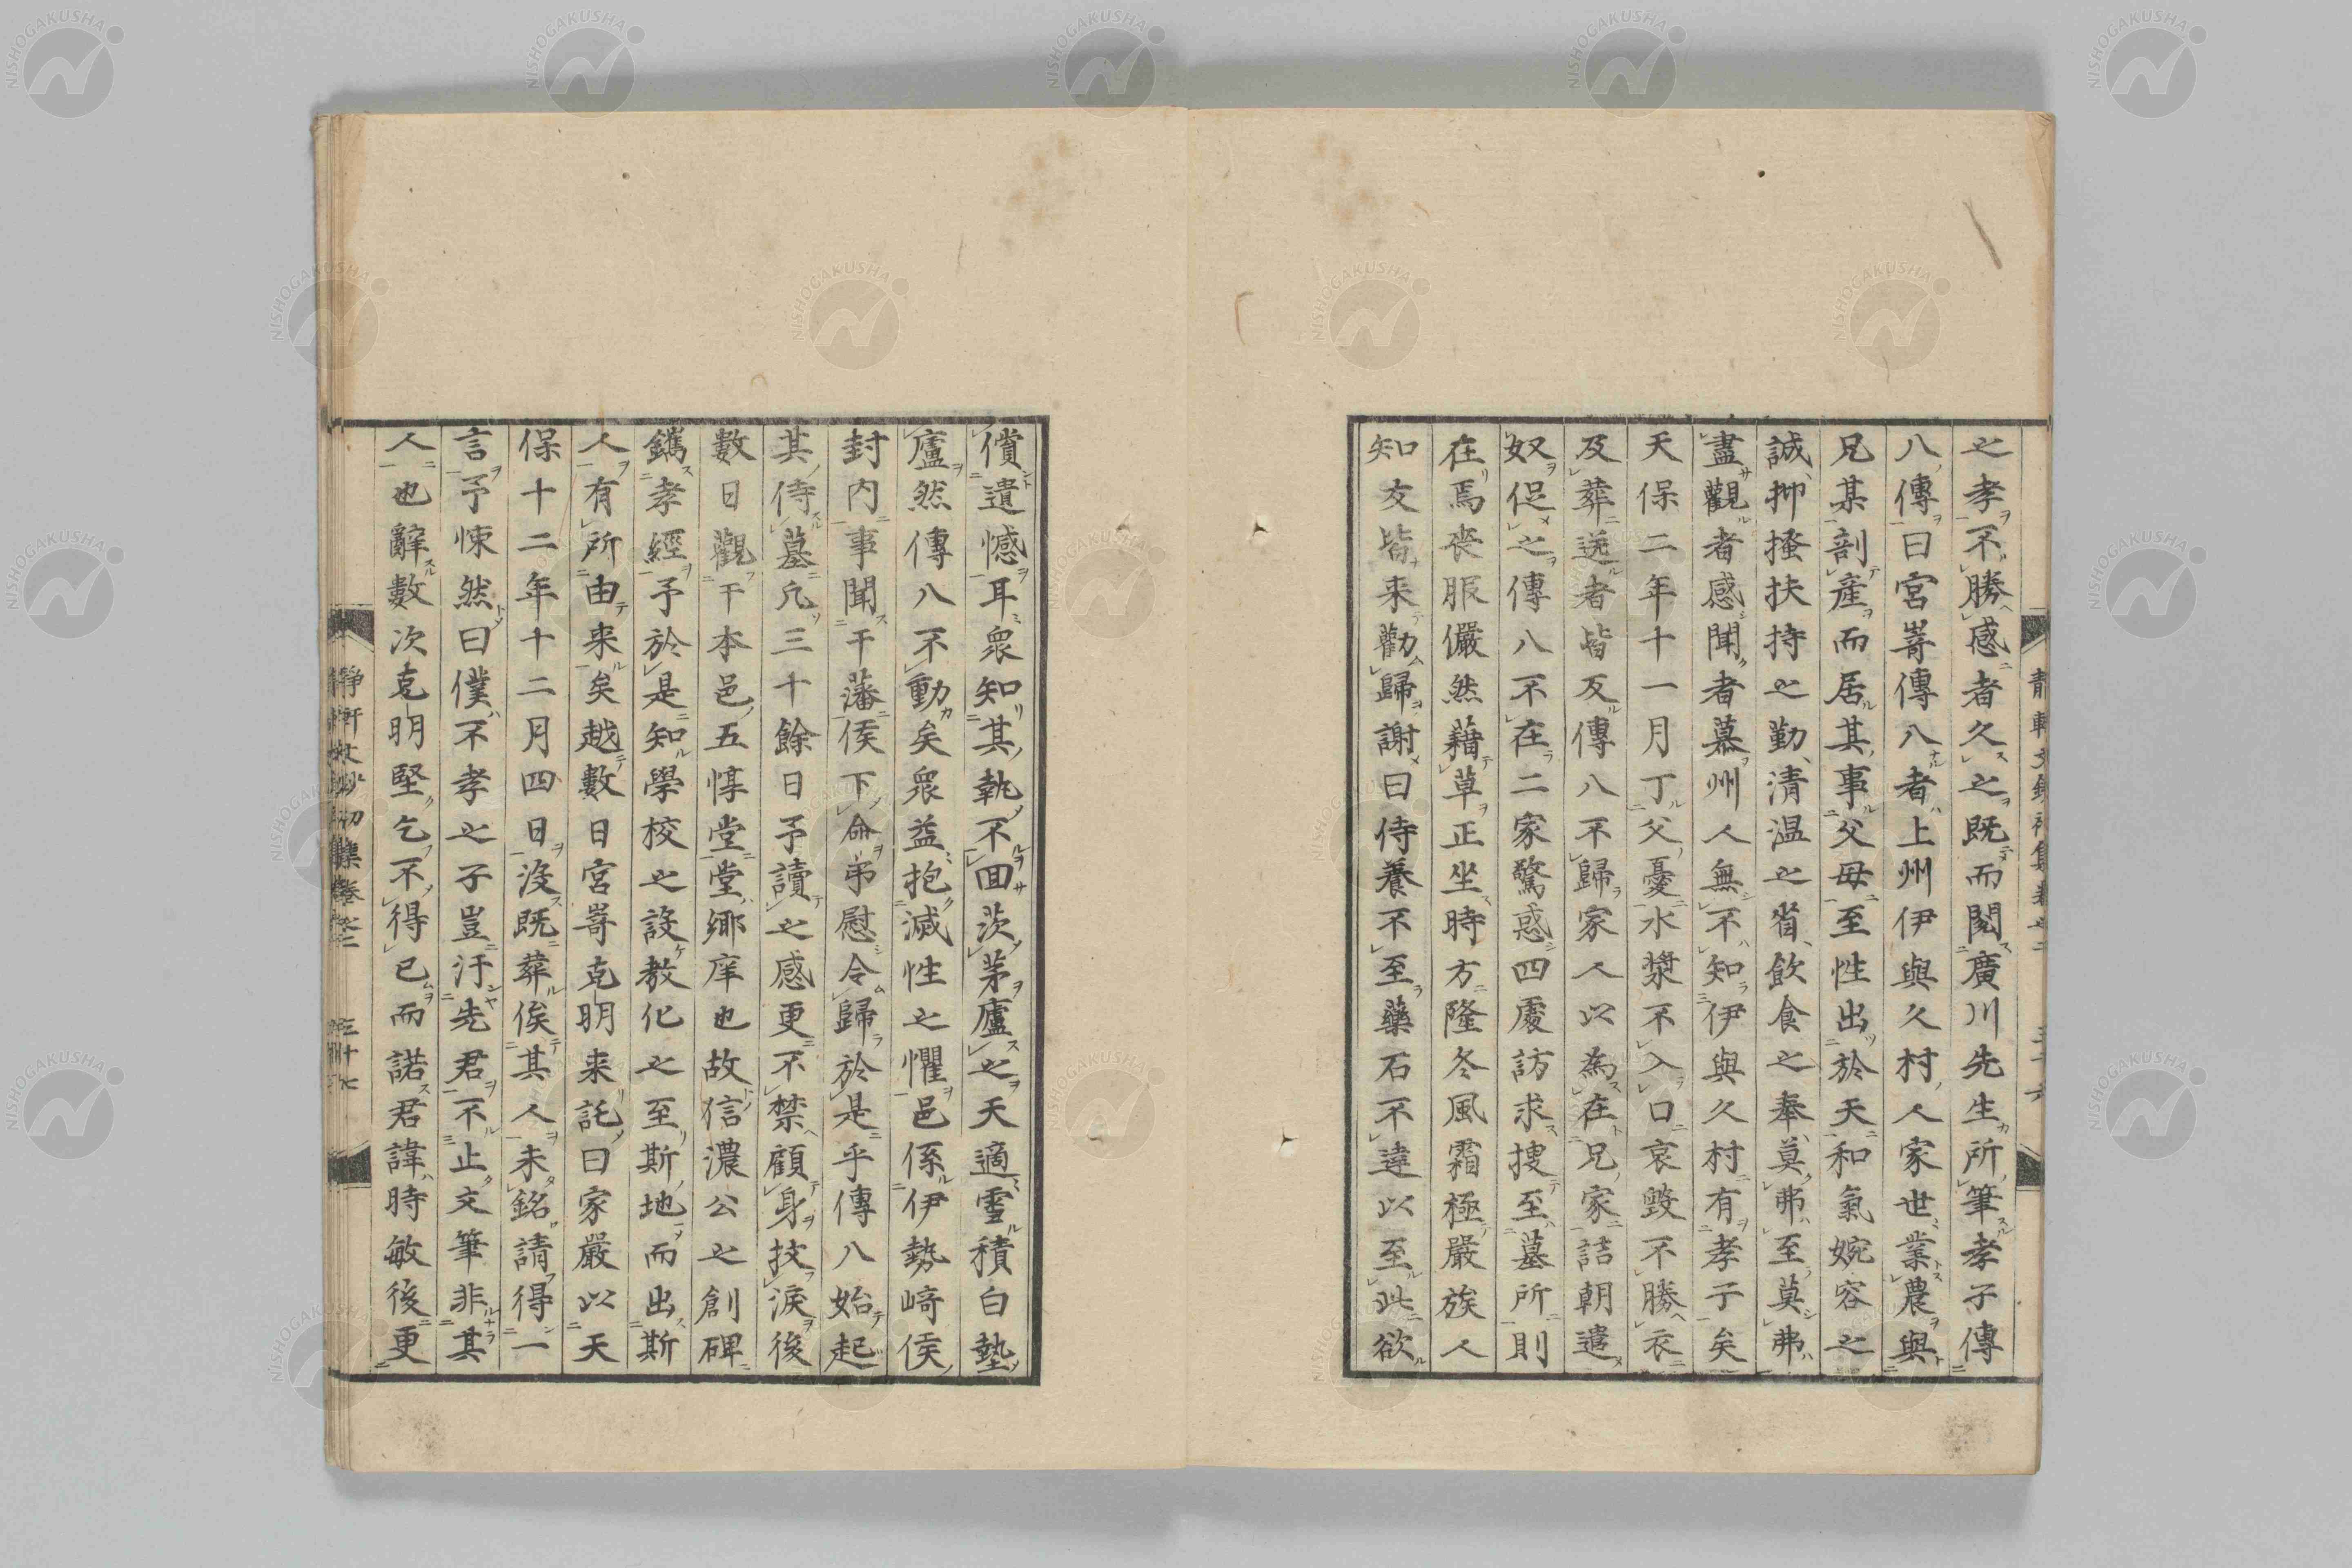 之孝不勝感者久之既而閱廣川先生所筆孝子傳
八傳曰宮嵜傳八者上州伊與久村人家世業農與
兄某剖產而居其事父母至性出於天和氣婉容之
誠抑搔扶持之勤清温之省飲食之奉莫弗至莫弗
盡觀者感聞者慕州人無不知伊與久村有孝子矣
天保二年十一月丁父憂水漿不入口哀毀不勝衣
及葬送者皆反傳八不歸家人以為在兄家詰朝遣
奴促之傳八不在二家驚惑四處訪求搜至墓所則
在焉喪服儼然藉草正坐時方隆冬風霜極嚴族人
知友皆来勸歸謝曰侍養不至藥石不達以至此欲
償遺憾耳衆知其執不回茨茅廬之天適雪積白墊
廬然傳八不動矣衆益抱滅性之懼邑係伊勢崎侯
封内事聞干藩侯下命弔慰令歸於是乎傳八始起
其侍墓凡三十餘日予讀之感更不禁顧身抆淚後
數日觀干本邑五惇堂堂鄉庠也故信濃公之創碑
鐫孝經予於是知學校之設教化之至斯地而出斯
人有所由来矣越數日宮嵜克明来託曰家嚴以天
保十二年十二月四日沒既葬俟其人未銘請得一
言予悚然曰僕不孝之子豈汙先君不止文筆非其
人也辭數次克明堅乞不得已而諾君諱時敏後更
静軒文鈔初集卷之二
三十七
NISHOGAKUSHA